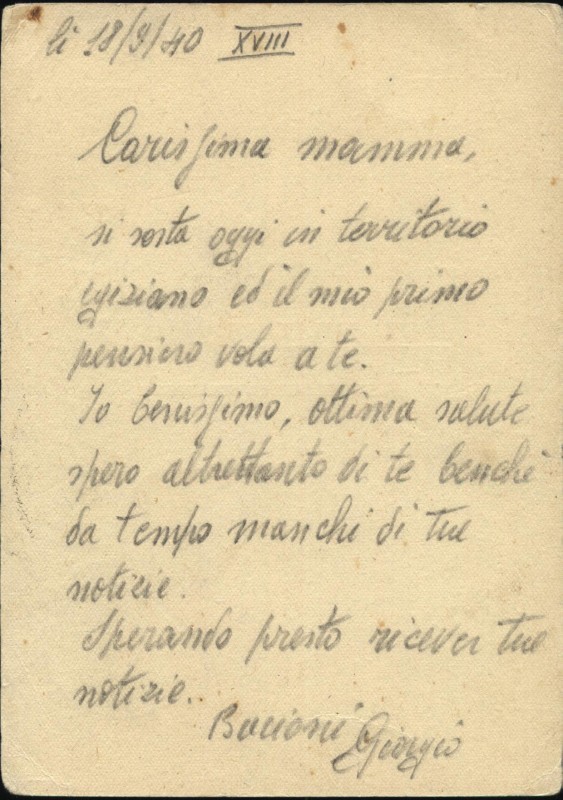 li 18/9/40 XVIII
Carissima mamma,
si sosta oggi in territorio
egiziano ed il mio primo
pensiero vola a te.
Io benissimo, ottima salute
spero altrettanto di te benchè
da tempo manchi di tue
notizie.
Sperando presto ricever tue
notizie..
Bacioni Giorgio